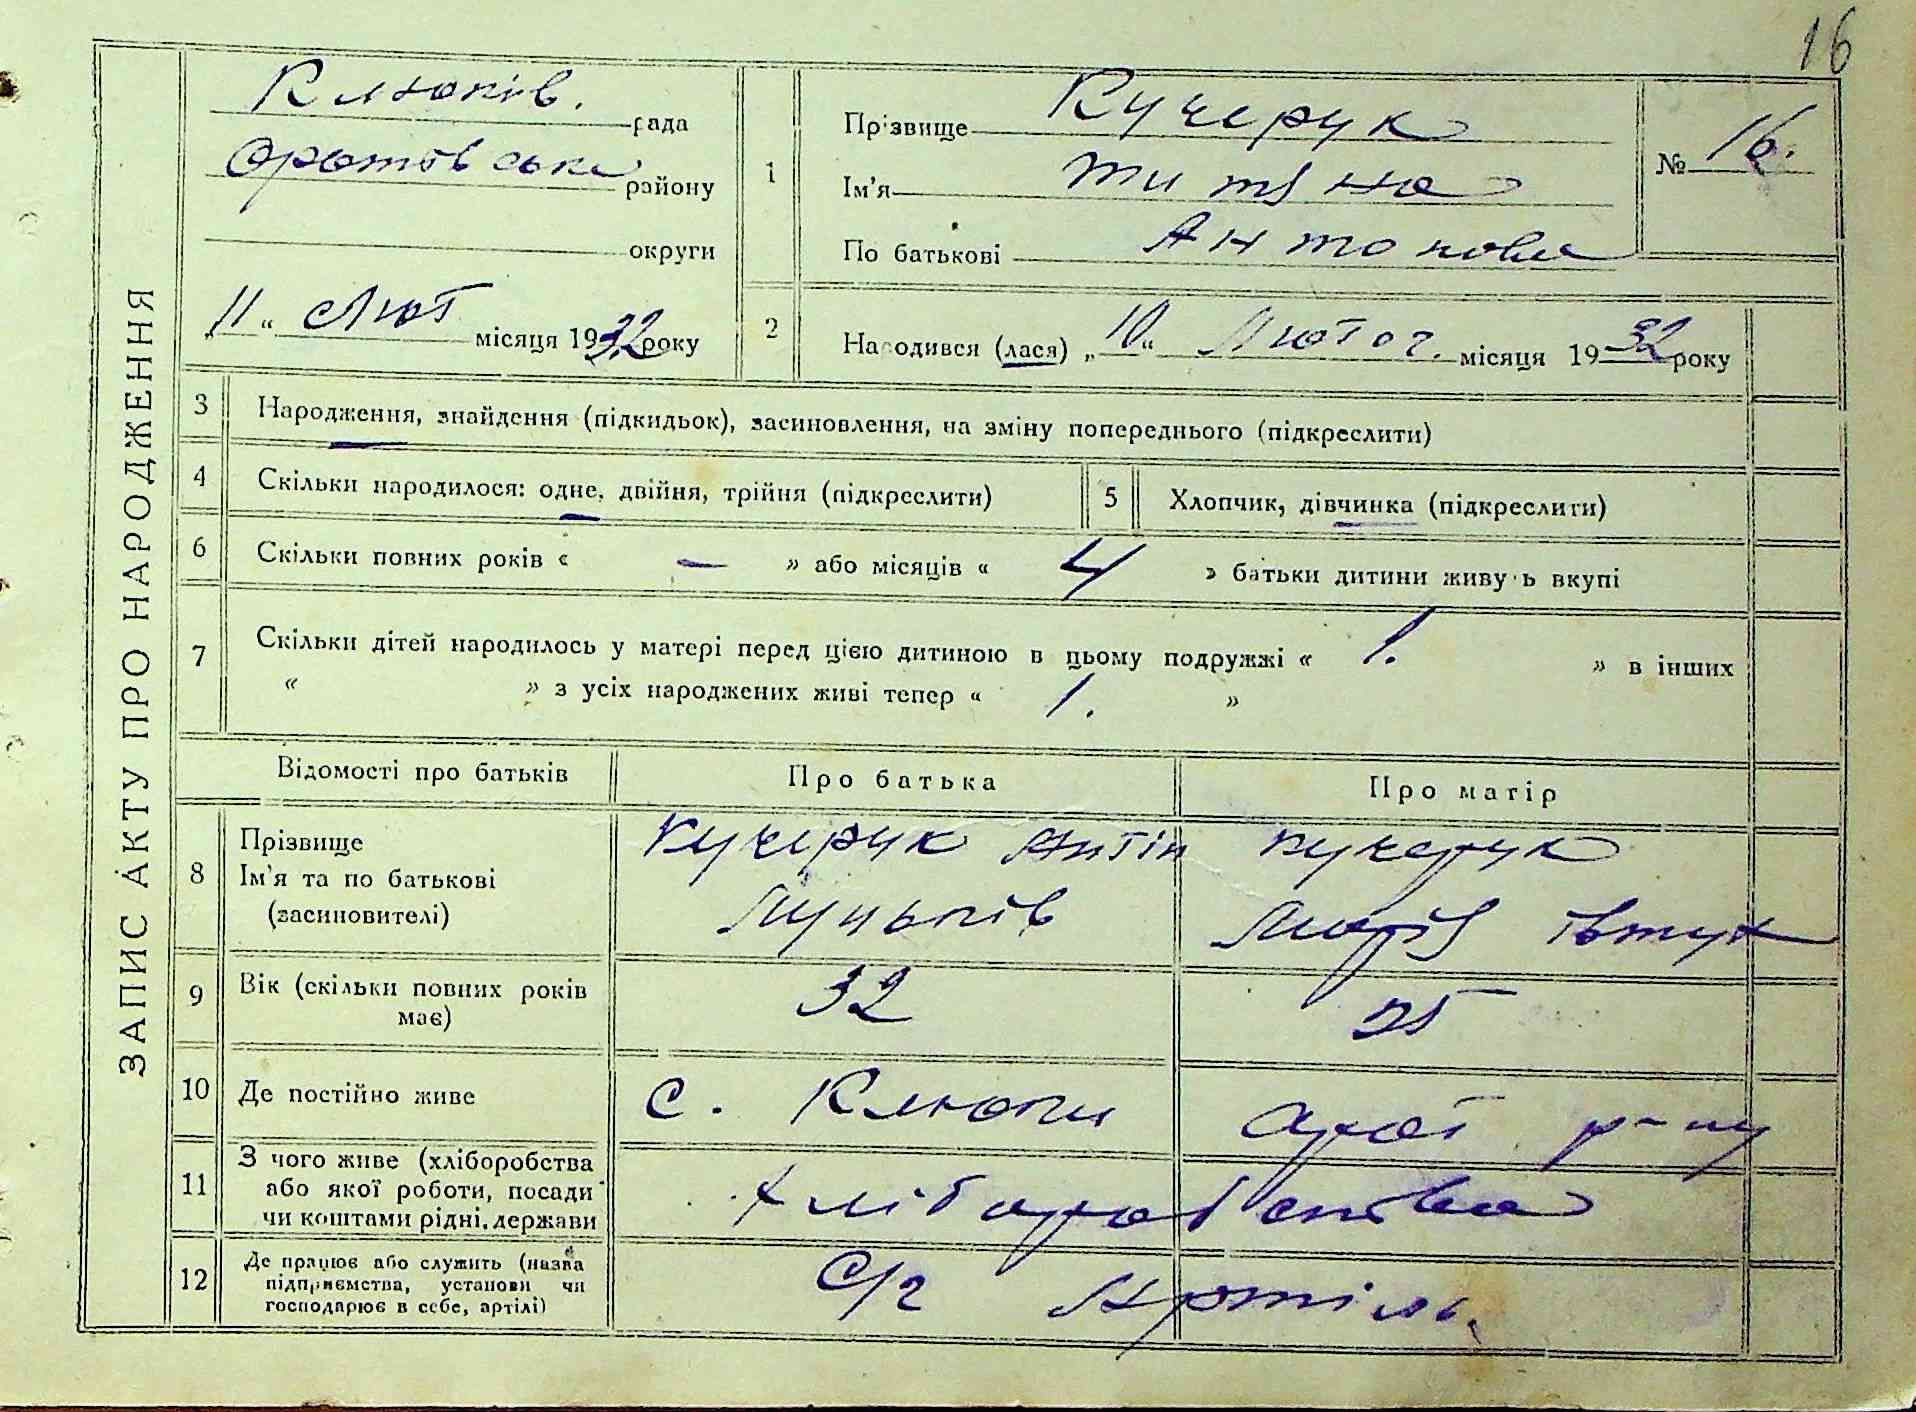 16
ЗАПИС АКТУ ПРО НАРОДЖЕННЯ
Клюків. рада
Оратівське району
округи
„11“ Лют місяця 1932 року
1
Прізвище Кучерук
Ім'я Титяна
По батькові Антонова
№ 16.
2
Народився (лася) „10“ Лютог. місяця 1932 року
3 Народження, знайдення (підкидьок), засиновлення, на зміну попереднього (підкреслити)
4 Скільки народилося: одне, двійня, трійня (підкреслити)
5 Хлопчик, дівчинка (підкреслити)
6 Скільки повних років « — » або місяців « 4 » батьки дитини живуть вкупі
7 Скільки дітей народилось у матері перед цією дитиною в цьому подружжі « 1. » в інших
« » з усіх народжених живі тепер « 1. »
Відомості про батьків Про батька Про матір
8 Прізвище
Ім'я та по батькові
(засиновителі)
Кучерук Антін
Кучерук
Марія Івтух
9 Вік (скільки повних років
має)
32
25
10 Де постійно живе с. Клюки Орат р-ну
11 З чого живе (хліборобства
або якої роботи, посади
чи коштами рідні, держави
Хліборобства
12 Де працює або служить (назва
підприємства, установи чи
господарює в себе, артілі)
С/г Артіль.